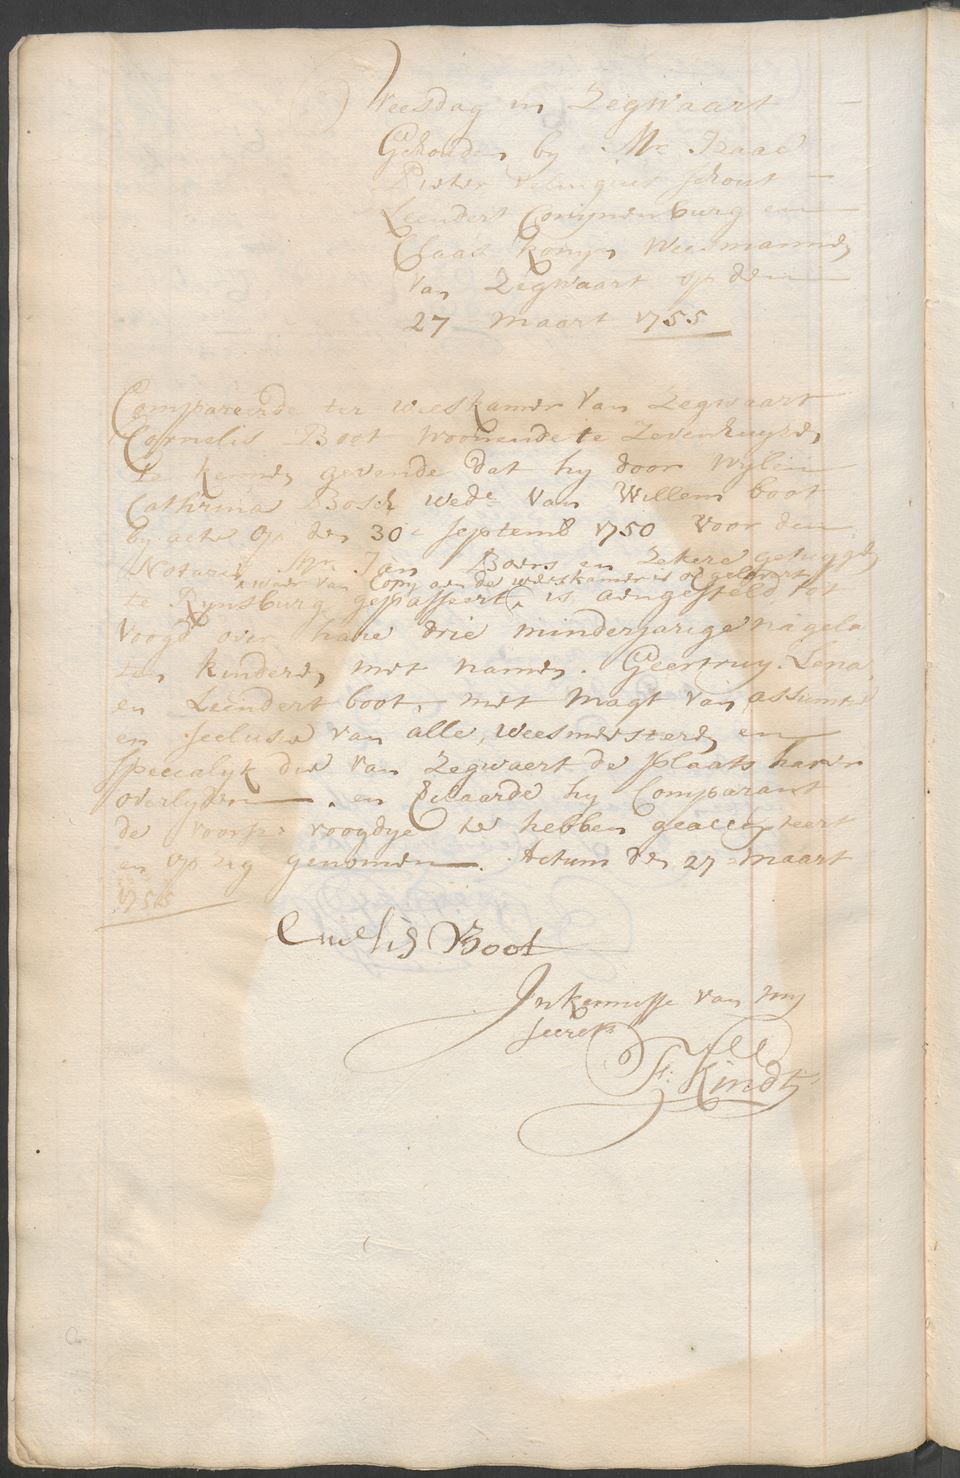 Weesdag in Zegwaart
Gehouden by Mr Izaac
Pieter schout
Leendert Conynenburg en
Claas Konyn Weesmannen
van Zegwaart op den
27 Maart 1755
Compareerde ter weeskamer van Zegwaart
Cornelis Boot woonende te Zevenhuysen
te kennen gevende dat hy door wylen
Cathrina Bosch wede van Willem boot
by acte op den 30e septemb 1750 voor den
Notaris Mr Jan Boers en zekere getuygen
waer van Copy aen de weeskamer is gelevert
te Rynsburg gepasseert, is aengesteld tot
Voogd over hare drie minderjarige nagela
ten kinderen met namen. Geertruy. Lena
en Leendert boot, met magt van assumtie
en seclusie van alle weesmeesteren en
specialyk die van Zegwaert de plaats harer
overlyden. en verclaarde hy Comparant
de voorsz voogdye te hebben geaccepteert
en op zig genomen. Actum den 27 maart
1755
Cornelis Boot
In kennisse van my
secrets
F: Kindt